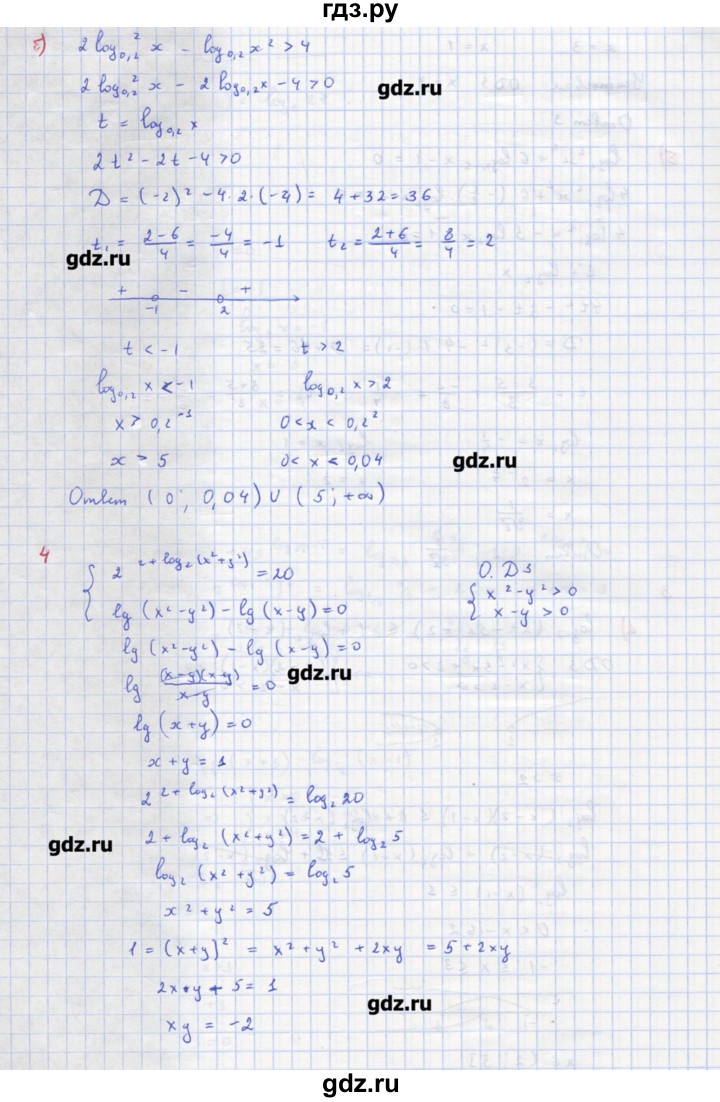 гдз.ру
б) 2 log²₀,₂ x - log₀,₂ x² > 4
2 log²₀,₂ x - 2 log₀,₂ x - 4 > 0
gdz.ru
t = log₀,₂ x
2t² - 2t - 4 > 0
D = (-2)² - 4·2·(-4) = 4 + 32 = 36
t₁ = (2-6)/4 = -4/4 = -1 t₂ = (2+6)/4 = 8/4 = 2
gdz.ru
+ - +
-1 2
t < -1 t > 2
log₀,₂ x < -1 log₀,₂ x > 2
x > 0,2⁻¹ 0 < x < 0,2²
x > 5 0 < x < 0,04
gdz.ru
Ответ (0; 0,04) ∪ (5; +∞)
4
{ 2^(2+log₂(x²+y²)) = 20 О.ДЗ
lg (x²-y²) - lg (x-y) = 0 { x²-y² > 0
x-y > 0
lg (x²-y²) - lg (x-y) = 0
gdz.ru
lg (x-y)(x+y)/(x-y) = 0
lg (x+y) = 0
x + y = 1
2^(2+log₂(x²+y²)) = log₂ 20
2 + log₂ (x²+y²) = 2 + log₂ 5
gdz.ru
log₂ (x²+y²) = log₂ 5
x² + y² = 5
1 = (x+y)² = x² + y² + 2xy = 5 + 2xy
2x·y + 5 = 1
gdz.ru
xy = -2
gdz.ru